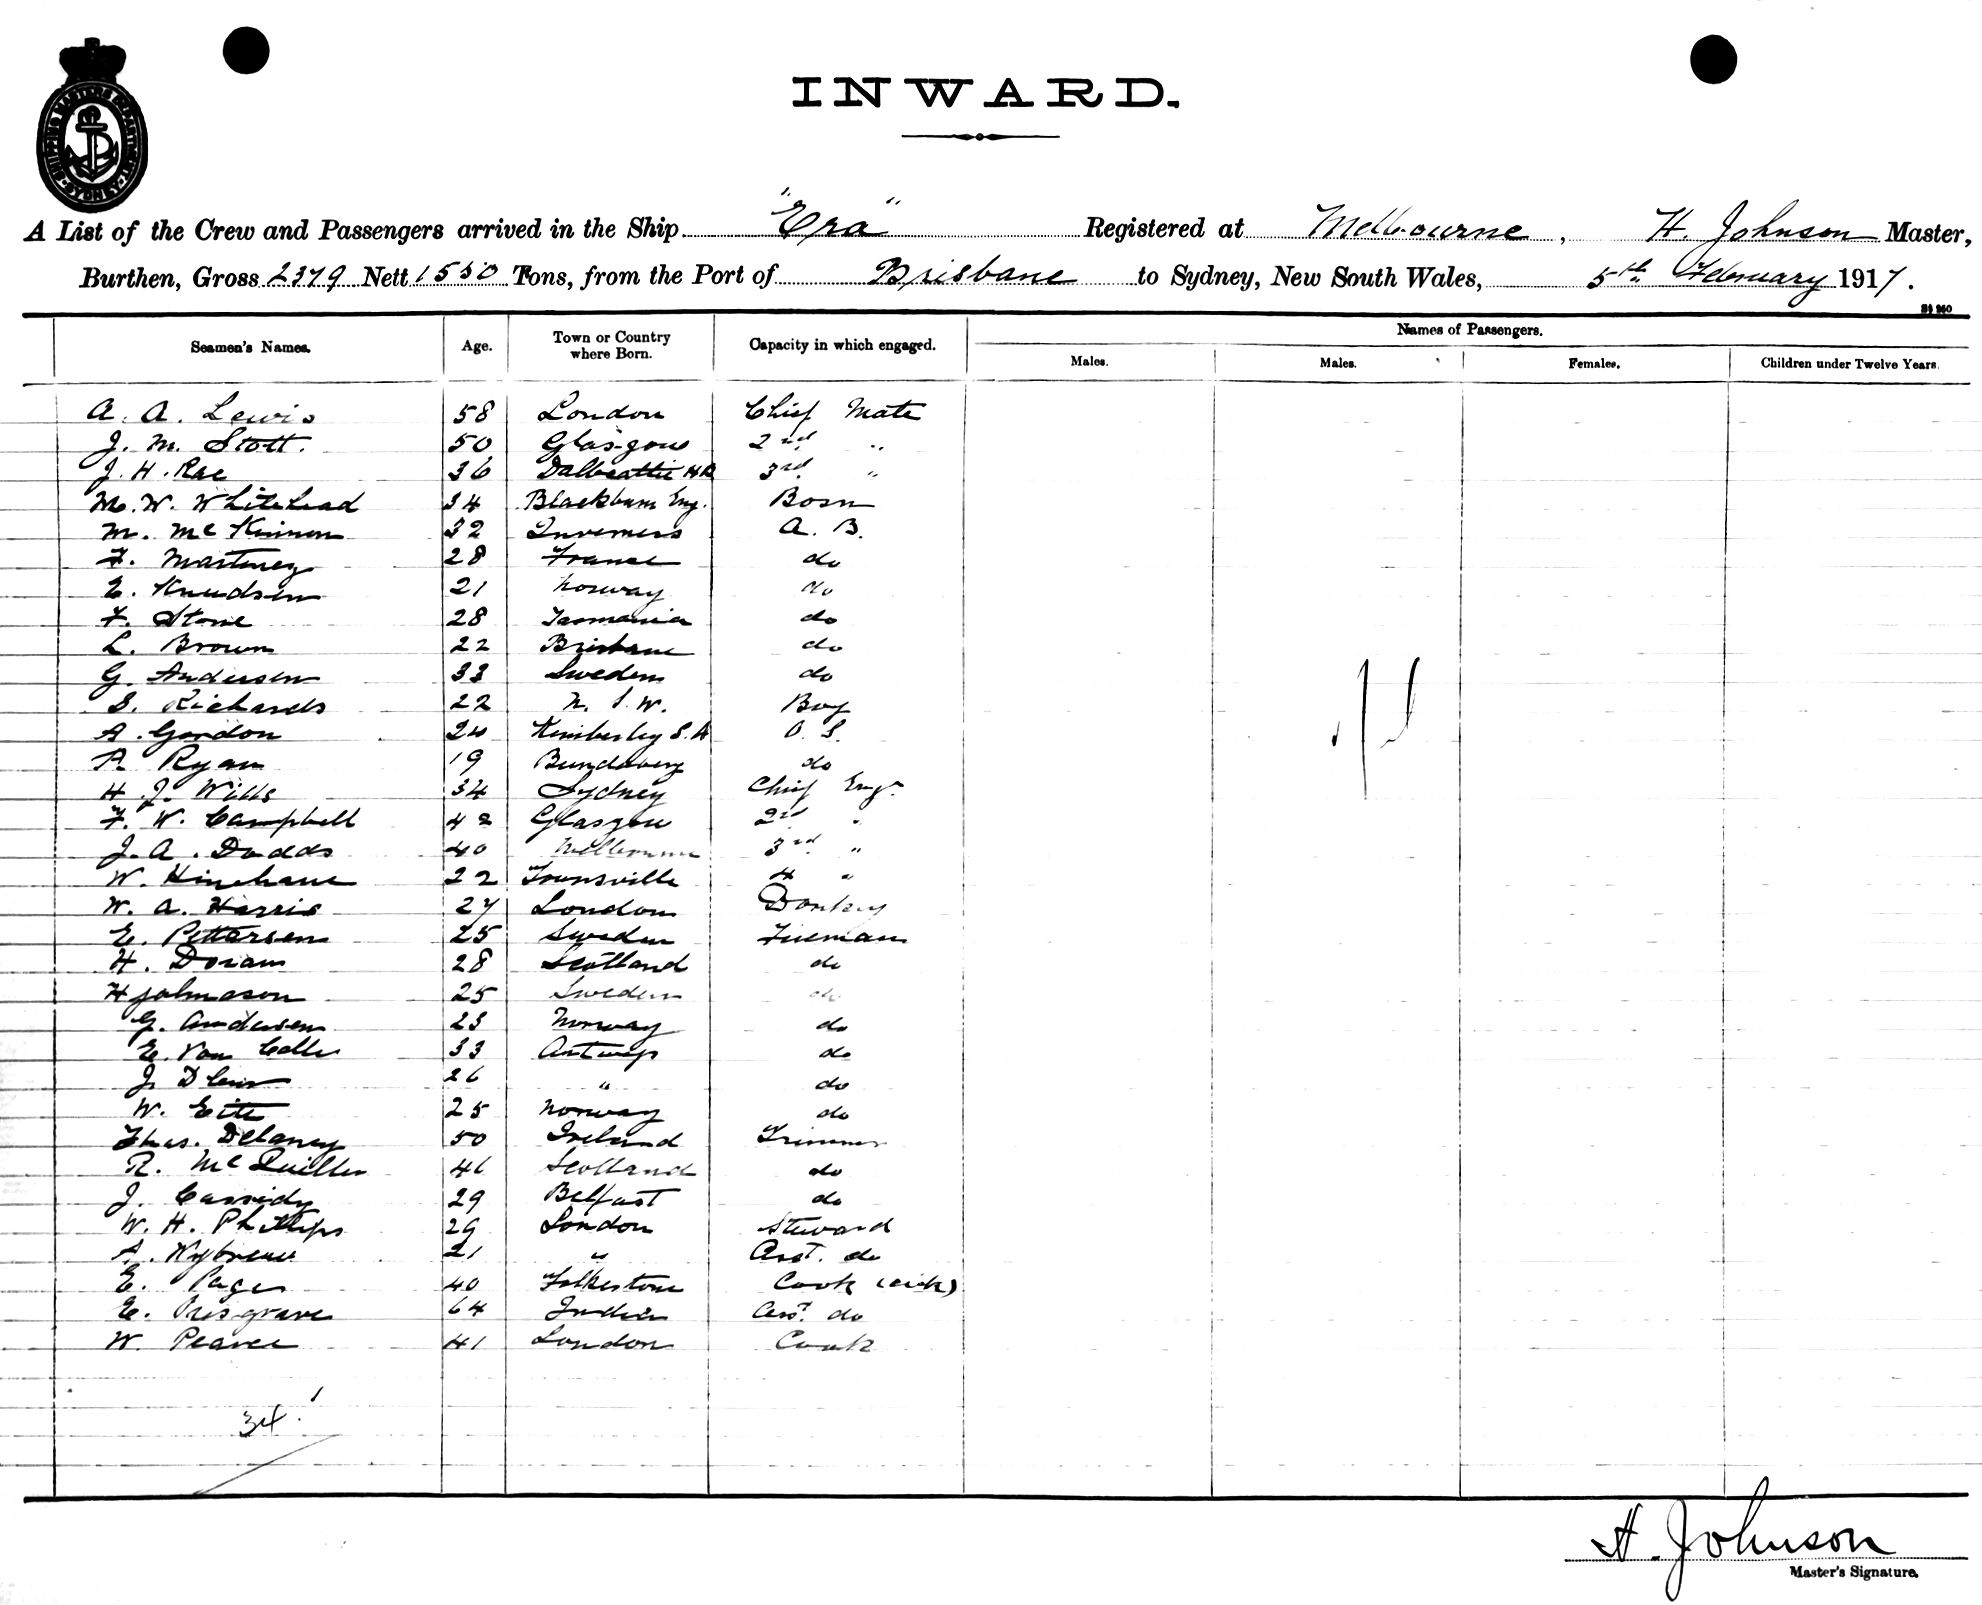 SHIPPING MASTERS DEPARTMENT SYDNEY
INWARD.
A List of the Crew and Passengers arrived in the Ship "Era" Registered at Melbourne, H. Johnson Master,
Burthen, Gross 2379 Nett 1550 Tons, from the Port of Brisbane to Sydney, New South Wales, 5th February 1917.
Names of Passengers.
Seamen's Names. Age. Town or Country where Born. Capacity in which engaged. Males. Males. Females. Children under Twelve Years.
A. A. Lewis 58 London Chief Mate
J. M. Stott. 50 Glasgow 2nd "
J. H. Rae 36 Dalbeattie 3rd "
M. W. Whitehead 34 Blackburn Eng. Bosn
M. McKinnon 32 Inverness A. B.
F. Martinez 28 France do
E. Knudsen 21 Norway do
F. Stone 28 Tasmania do
L. Brown 22 Brisbane do
G. Andersen 33 Sweden do
S. Richards 22 N. S. W. Boy
A. Gordon 24 Kimberley S. A O. S.
A Ryan 19 Bundaberg do
H. J. Wills 34 Sydney Chief Engr
F. W. Campbell 42 Glasgow 2nd "
J. A. Dodds 40 Melbourne 3rd "
W. Hinchane 22 Townsville 4 "
W. A. Harris 27 London Donkey
E. Pettersen 25 Sweden Fireman
H. Doran 28 Scotland do
H Johnason 25 Sweden do
G. Andersen 23 Norway do
E. Van 33 Antwerp do
J. 26 " do
W. 25 Norway do
Thas. Delaney 50 Ireland Trimmer
R. McQuillen 41 Scotland do
J. Cassidy 29 Belfast do
W. H. Phillips 29 London Steward
A. 21 " Asst. do
E. Page 40 Folkestone Cook (sick)
E. Presgrave 64 India Asst. do
W. Pearce 41 London Cook
34
H. Johnson
Master's Signature.